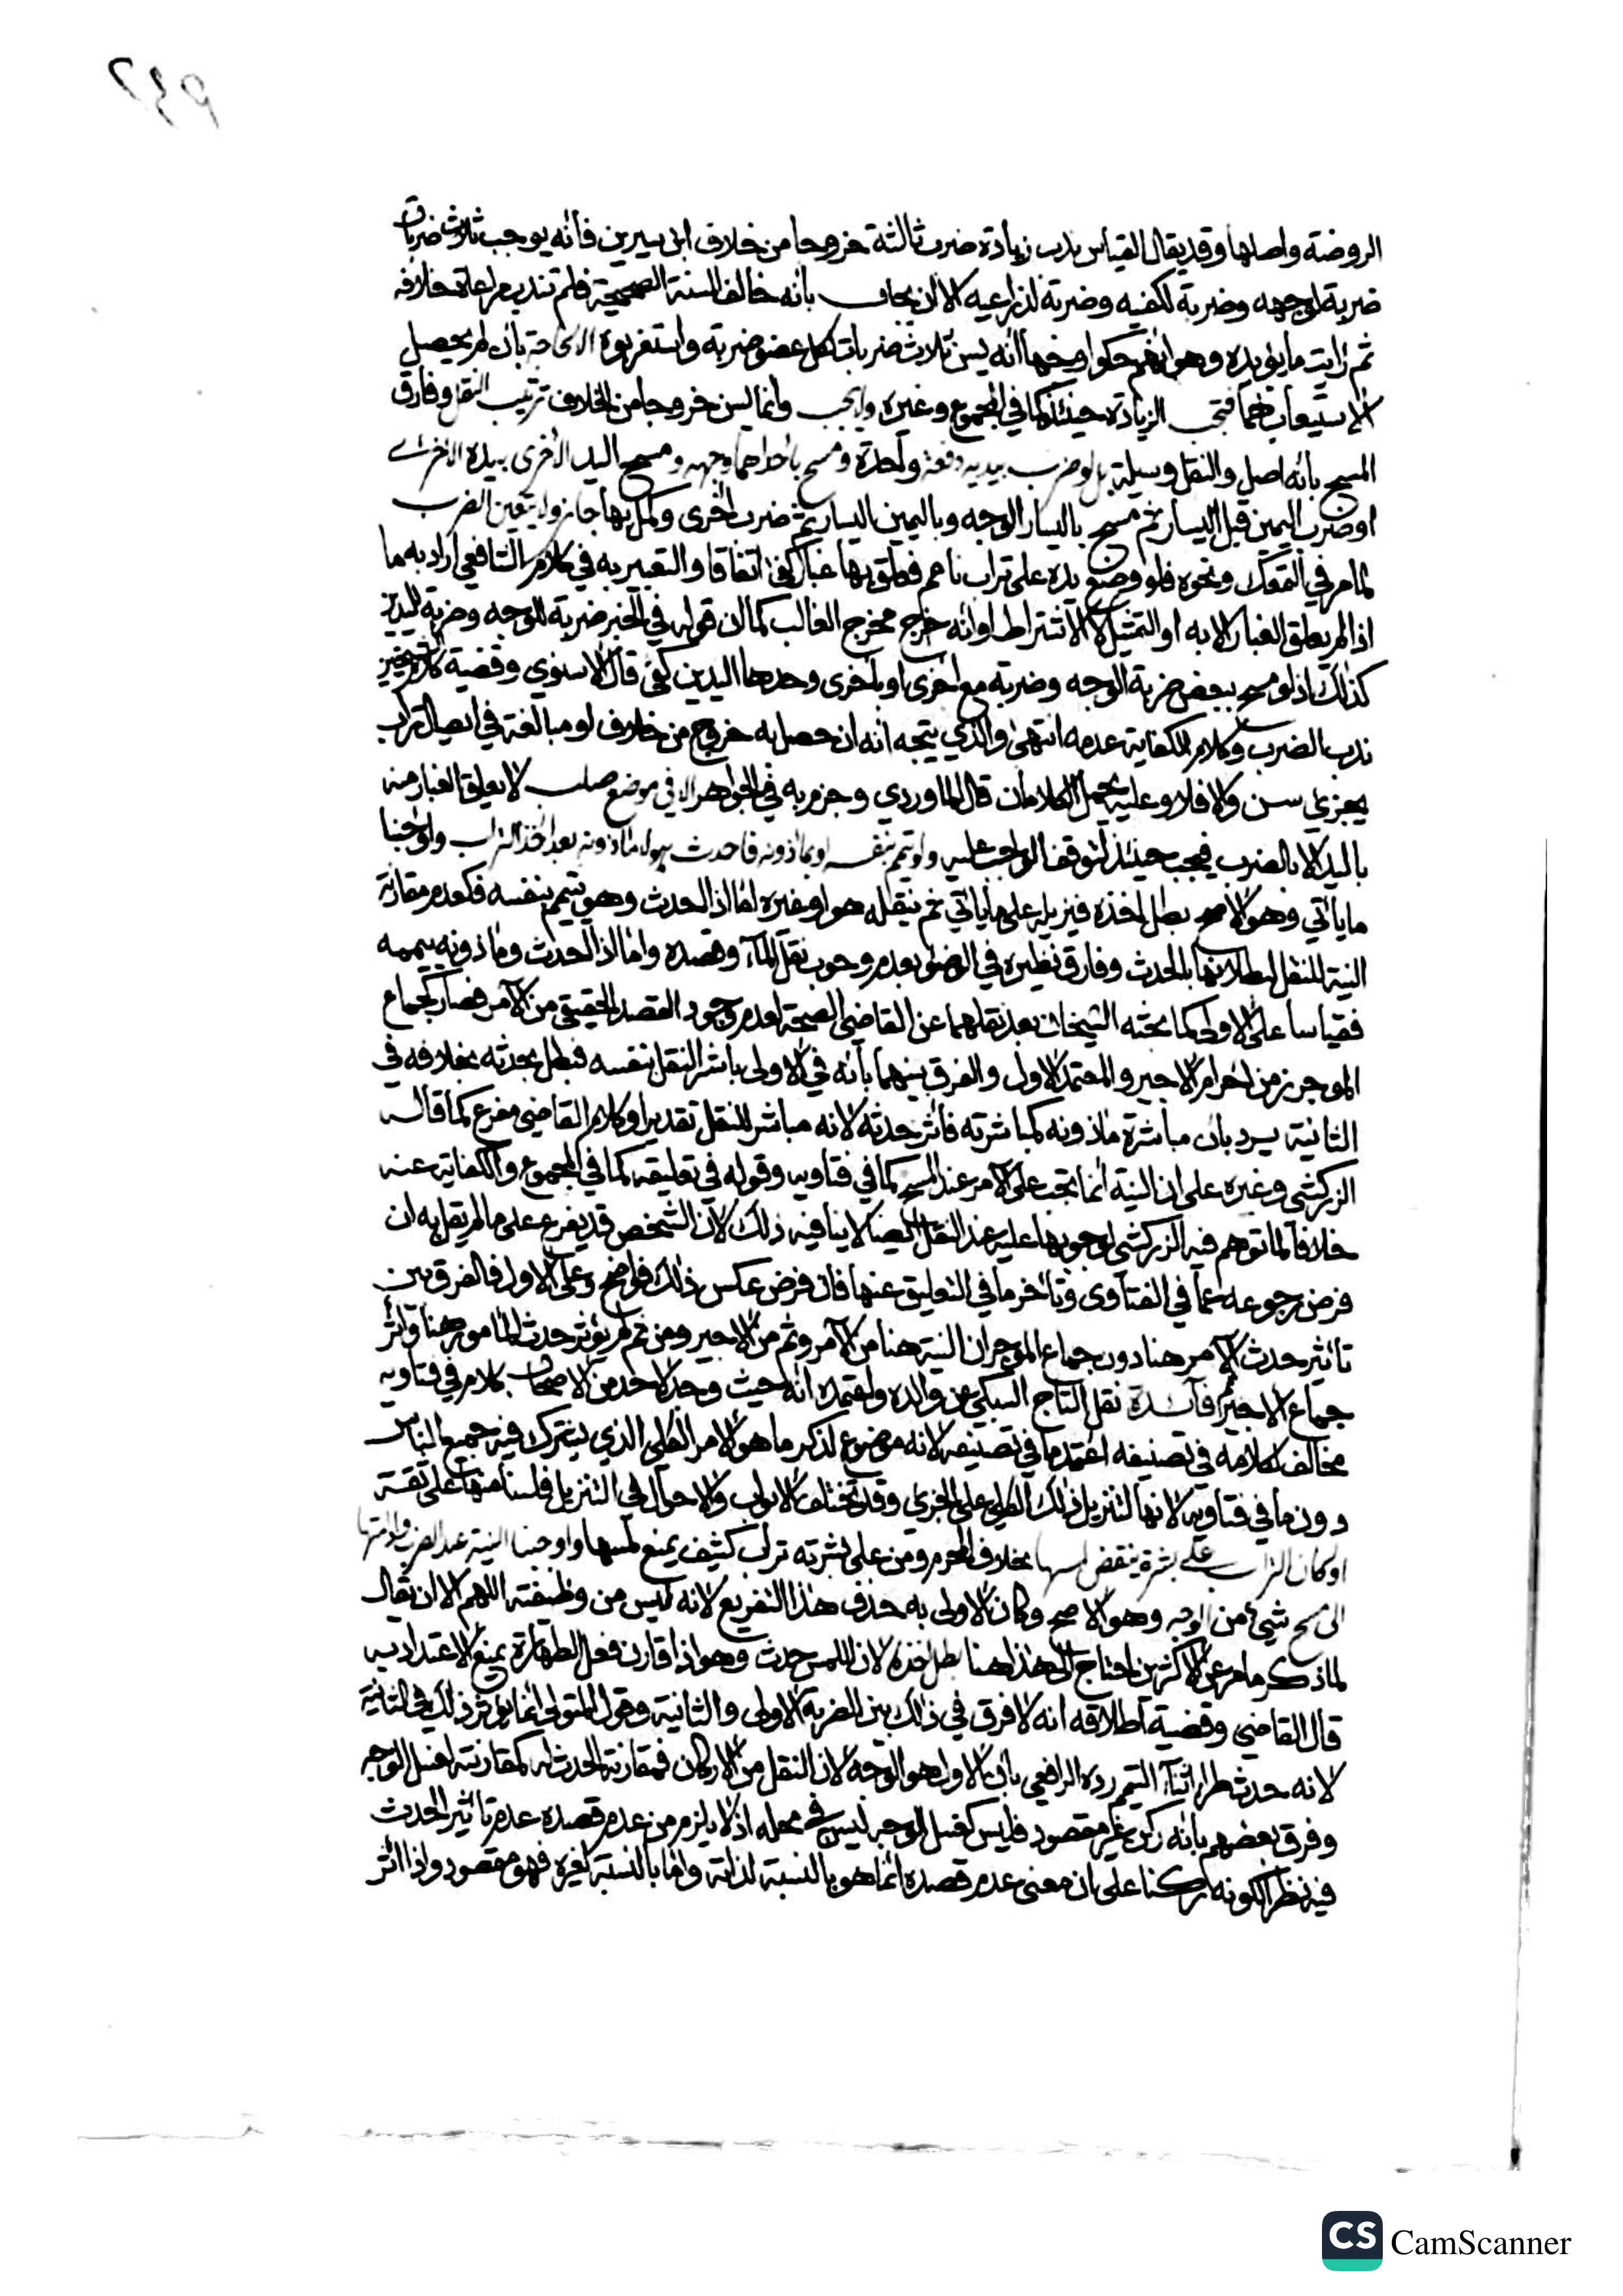 الروضة واصلها وقد يقال القياس ندب زيادة ضربة ثالثة خروجا من خلاف ابن سيرين فانه يوجب ثلاث ضربات
ضربة لوجهه وضربة لكفيه وضربة لذراعيه الا ان يجاب بانه خالف السنة الصحيحة فلم تندب مراعاة خلافه
ثم رايت ما يؤيده وهو انهم حكوا وجها انه يسن ثلاث ضربات لكل عضو ضربة واستغربوه الا لحاجة بان لم يحصل
الاستيعاب بهما فتجب الزيادة حينئذ كما في المجموع وغيره ولا يجب وانما يسن خروجا من الخلاف ترتيب النقل وفارق
المسح بانه اصل والنقل وسيلة بل لو ضرب بيديه دفعة واحدة ومسح باحداهما وجهه ومسح اليد الاخرى بيده الاخرى
او ضرب اليمين قبل اليسار ثم مسح باليسار الوجه وباليمين اليسار ثم ضرب اخرى وكمل بها جاز ولا يتعين الضرب
لما مر في التمعك ونحوه فلو وضع يده على تراب ناعم فعلق بها غبار كفى اتفاقا والتعبير به في كلام الشافعي اراد به ما
اذا لم يعلق الغبار الا به او التمثيل لا الاشتراط او انه خرج مخرج الغالب كما ان قوله في الخبر ضربة للوجه وضربة لليدين
كذلك اذ لو مسح ببعض ضربة الوجه وضربة مع اخرى او باخرى وحدها اليدين كفى قال الاسنوي وقضية كلام الشيخين
ندب الضرب وكلام الكفاية عدمه انتهى والذي يتجه انه ان حصل به خروج من خلاف او مبالغة في ايصال تراب
يجزئ سن والا فلا وعليه يحمل الكلامان قال الماوردي وجزم به في الجواهر الا في موضع صلب لا يعلق الغبار منه
باليد الا بالضرب فيجب حينئذ لتوقف الواجب عليه ولو تيمم بنفسه او بماذونه فاحدث هو لا ماذونه بعد اخذ التراب واوجبنا
ما ياتي وهو الاصح بطل اخذه فيزيله على ما ياتي ثم ينقله هو او غيره اما اذا احدث وهو تيمم بنفسه فكعدم مقارنة
النية للنقل لبطلانها بالحدث وفارق نظيره في الوضوء بعدم وجوب نقل الماء وقصده واما اذا احدث وماذونه ييممه
فقياسا على الاولى كما بحثه الشيخان بعد نقلهما عن القاضي الصحة لعدم وجود القصد الحقيقي من الآمر فصار كجماع
الموجر زمن احرام الاجير والمعتمد الاول والفرق بينهما بانه في الاولى باشر النقل بنفسه فبطل بحدثه بخلافه في
الثانية يرد بان مباشرة ماذونه كمباشرته فاثر حدثه لانه مباشر للنقل تقديرا وكلام القاضي مفرع كما قاله
الزركشي وغيره على ان النية انما تجب على الآمر عند المسح كما في فتاويه وقوله في تعليقه كما في المجموع والكفاية عنه
خلافا لما توهم فيه الزركشي لوجوبها عليه عند النقل ايضا لا ينافيه ذلك لان الشخص قد يفرع على ما لم يقل به ان
فرض رجوعه عما في الفتاوى وتاخر ما في التعليق عنها فان فرض عكس ذلك فواضح وعلى الاول فالفرق بين
تاثير حدث الآمر هنا دون جماع الموجر ان النية هنا من الآمر وثم من الاجير ومن ثم لم يؤثر حدث المامور هنا واثر
جماع الاجير ثم فائدة نقل التاج السبكي عن والده واعتمده انه حيث وجد لاحد من الاصحاب كلام في فتاويه
مخالف لكلامه في تصنيفه اعتمد ما في تصنيفه لانه موضوع لذكر ما هو الامر الكلي الذي يشترك فيه جميع الناس
دون ما في فتاويه لانها لتنزيل ذلك الكلي على الجزئي وقد تختلف الابواب والاحوال في التنزيل فلسنا منها على ثقة
او كان التراب على بشرة ينقض لمسها بخلاف المحرم ومن على بشرته تراب كثيف يمنع لمسها واوجبنا النية عند الضرب وادامتها
الى مسح شيء من الوجه وهو الاصح وكان الاولى به حذف هذا التفريع لانه ليس من وظيفته اللهم الا ان يقال
لما ذكر ما مر عن الاكثرين احتاج الى هذا هنا بطل اخذه لان اللمس حدث وهو اذا قارن فعل الطهارة يمنع الاعتداد به
قال القاضي وقضية اطلاقه انه لا فرق في ذلك بين الضربة الاولى والثانية وقول المتولي انما يؤثر ذلك في الثانية
لانه حدث طرا اثناء التيمم رده الرافعي بان الاول هو الوجه لان النقل من الاركان فمقارنة الحدث له كمقارنته لغسل الوجه
وفرق بعضهم بانه ركن غير مقصود فليس كغسل الوجه ليس في محله اذ لا يلزم من عدم قصده عدم تاثير الحدث
فيه نظرا لكونه ركنا على ان معنى عدم قصده انما هو بالنسبة لذاته واما بالنسبة لغيره فهو مقصود واذا اثر
CS CamScanner